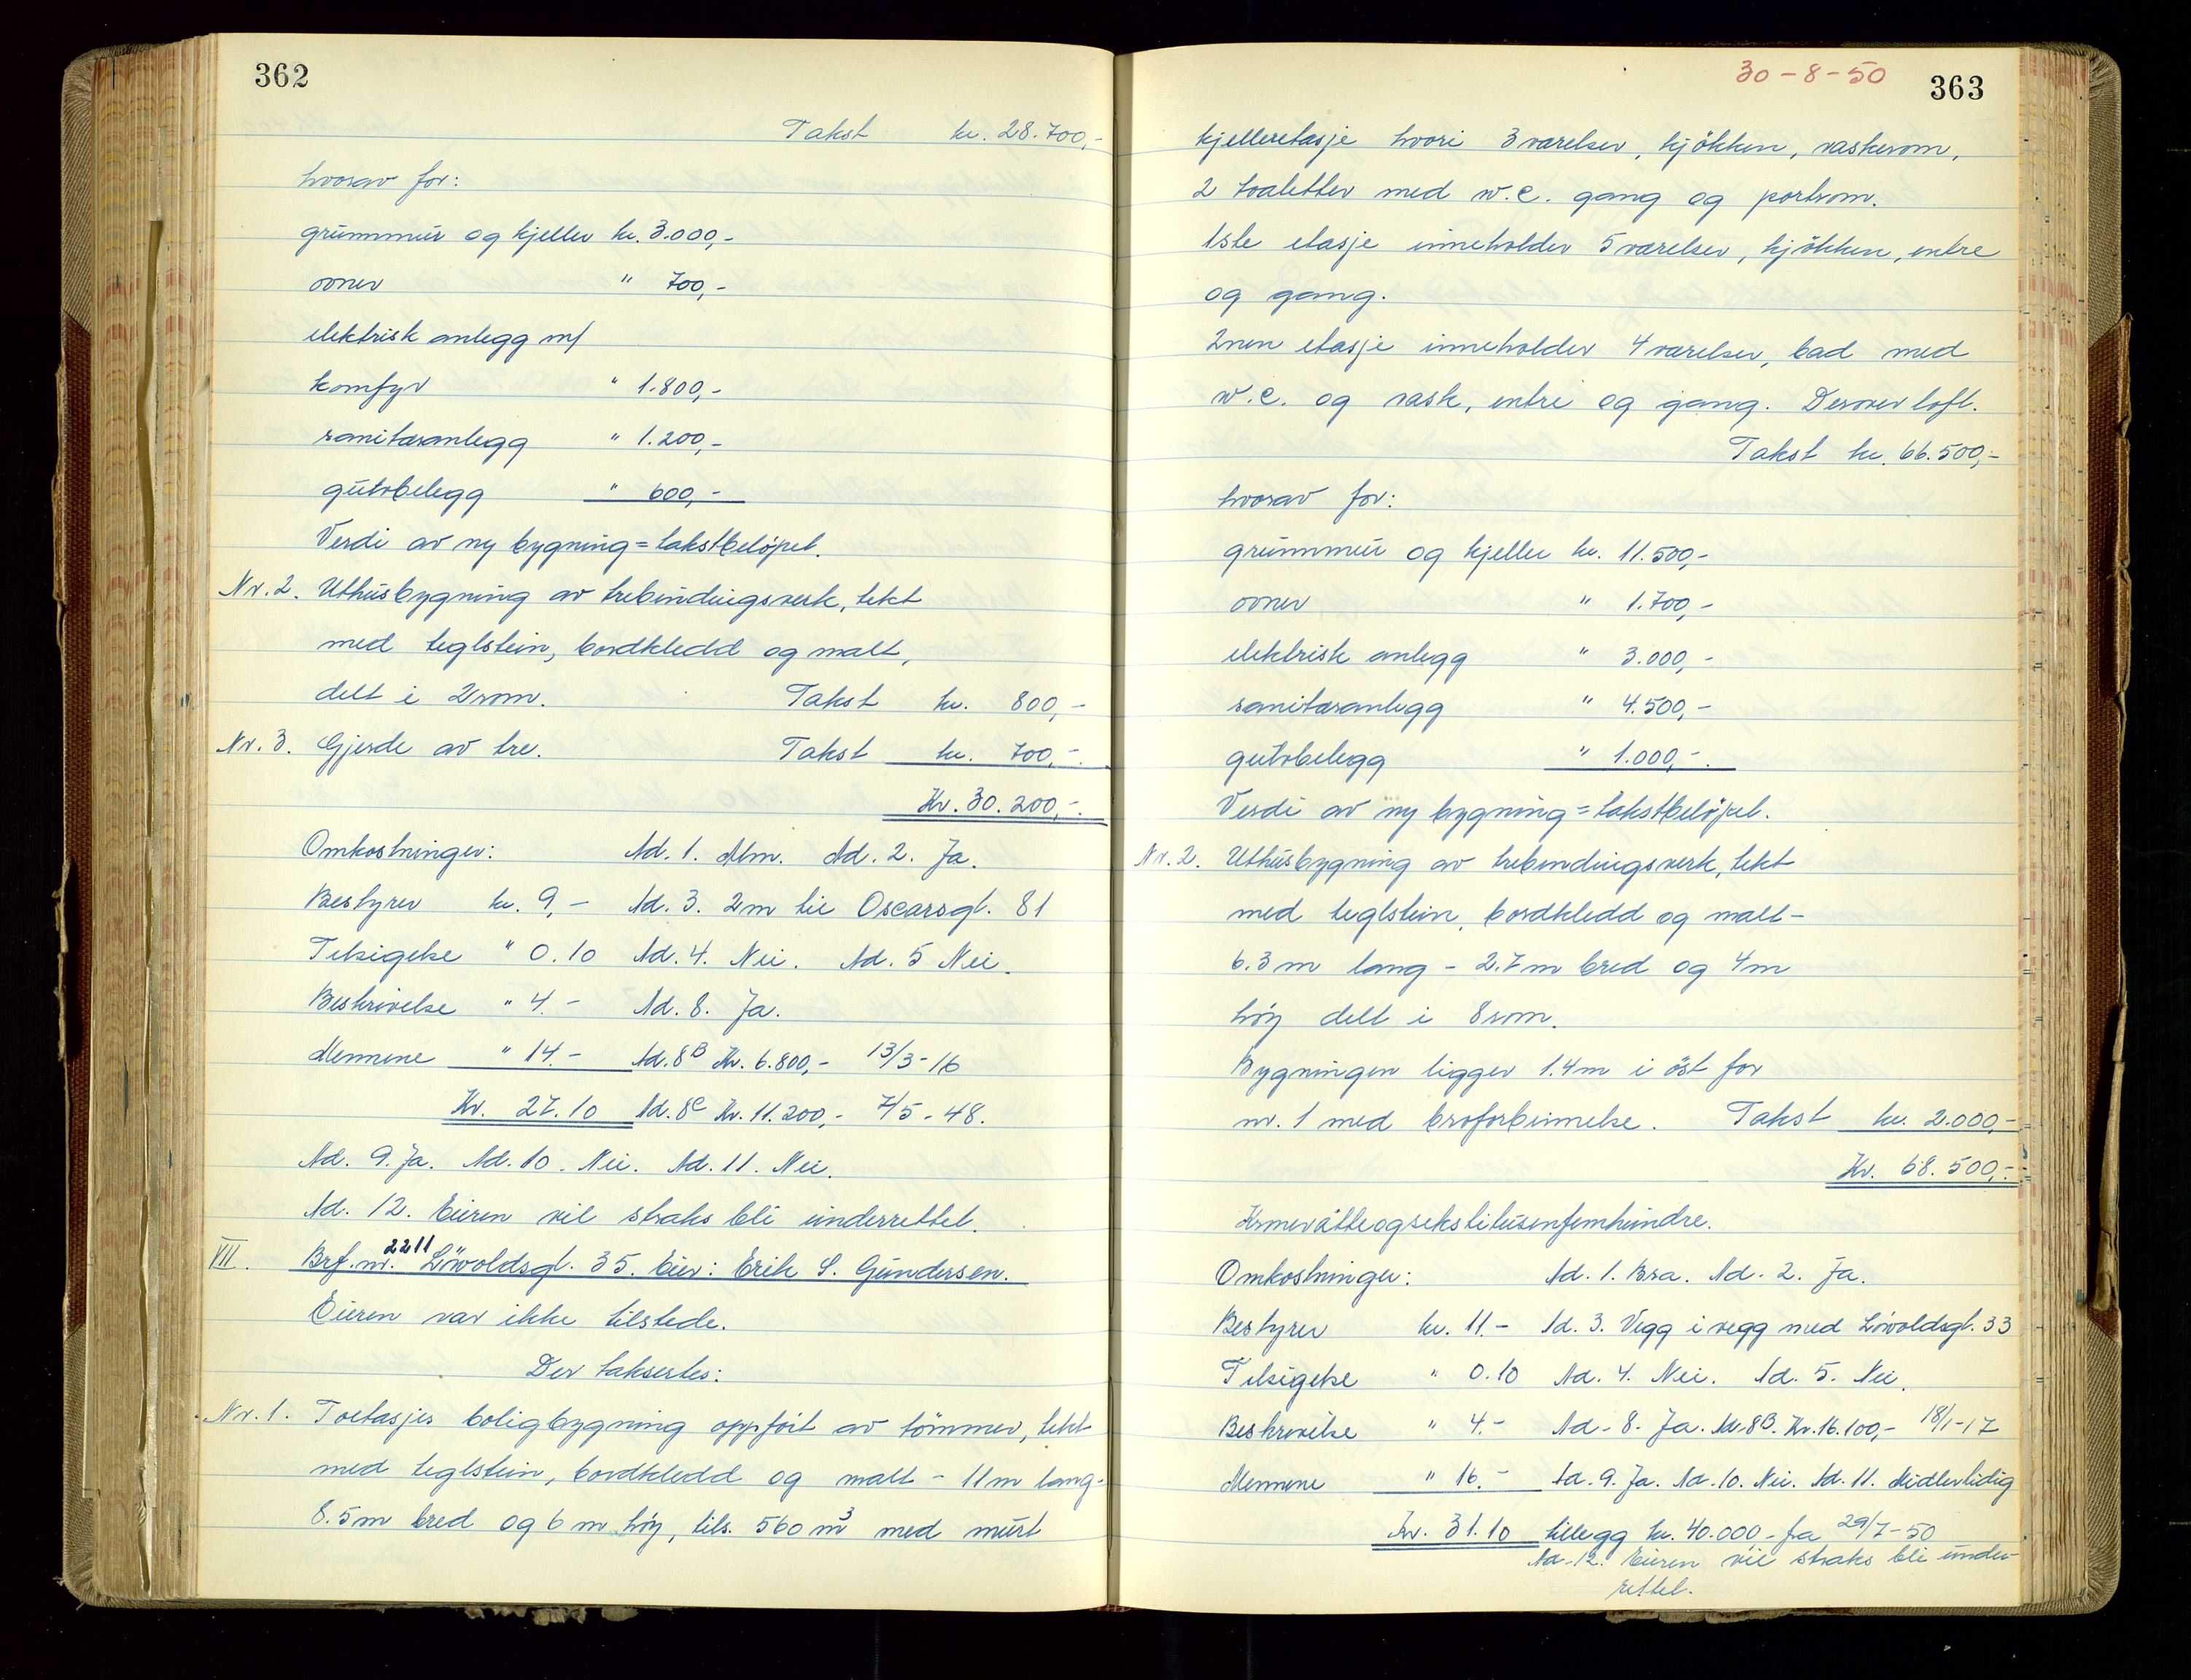 362
Takst kr. 28.700,-
hvorav for:
grunnmur og kjeller kr. 3.000,-
ovner " 700,-
elektrisk anlegg m/
komfyr " 1.800,-
sanitæranlegg " 1.200,-
gulvbelegg " 600,-
Verdi av ny bygning = takstbeløpet.
Nr. 2. Uthusbygning av trebindingsverk, tekt
med teglstein, bordkledd og malt,
delt i 2 rom. Takst kr. 800,-
Nr. 3. Gjerde av tre. Takst kr. 700,-.
Kr. 30.200,-.
Omkostninger: Ad. 1. Alm. Ad. 2. Ja.
Bestyrer kr. 9,- Ad. 3. 2m til Oscarsgt. 81
Tilsigelse " 0.10 Ad. 4. Nei. Ad. 5 Nei.
Beskrivelse " 4.- Ad. 8. Ja.
Mennene " 14.- Ad. 8B Kr. 6.800,- 13/3-16
Kr. 27.10 Ad. 8C Kr. 11.200,- 7/5-48.
Ad. 9. Ja. Ad. 10. Nei. Ad. 11. Nei.
Ad. 12. Eieren vil straks bli underrettet.
VII. Brf. nr. 2211 Løvoldsgt. 35. Eier: Erik S. Gundersen.
Eieren var ikke tilstede.
Der taksertes:
Nr. 1. Toetasjes boligbygning oppført av tømmer, tekt
med teglstein, bordkledd og malt - 11m lang-
8.5m bred og 6 m høy, tils. 560 m3 med murt
30-8-50
363
kjelleretasje hvori 3 værelser, kjøkken, vaskerom,
2 toaletter med w.c. gang og portrom.
1ste etasje inneholder 5 værelser, kjøkken, entre
og gang.
2nen etasje inneholder 4 værelser, bad med
w.c. og vask, entre og gang. Derover loft.
Takst kr. 66.500,-
hvorav for:
grunnmur og kjeller kr. 11.500,-
ovner " 1.700,-
elektrisk anlegg " 3.000,-
sanitæranlegg " 4.500,-
gulvbelegg " 1.000,-.
Verdi av ny bygning = takstbeløpet.
Nr. 2. Uthusbygning av trebindingsverk, tekt
med teglstein, bordkledd og malt-
6.3m lang - 2.7m bred og 4m
høy delt i 8 rom.
Bygningen ligger 1.4m i øst for
nr. 1 med broforbinnelse. Takst kr. 2.000,-
Kr. 68.500,-
Kroneråtteogsekstitusenfemhundre.
Omkostninger: Ad. 1. Bra. Ad. 2. Ja.
Bestyrer kr. 11.- Ad. 3. Vegg i vegg med Løvoldsgt. 33
Tilsigelse " 0.10 Ad. 4. Nei. Ad. 5. Nei.
Beskrivelse " 4.- Ad. 8. Ja. Ad. 8B. Kr. 16.100,- 18/1-17
Mennene " 16.- Ad. 9. Ja. Ad. 10. Nei. Ad. 11. Midlertidig
Kr. 31.10 tillegg kr. 40.000- fra 29/7-50
Ad. 12. Eieren vil straks bli under-
rettet.